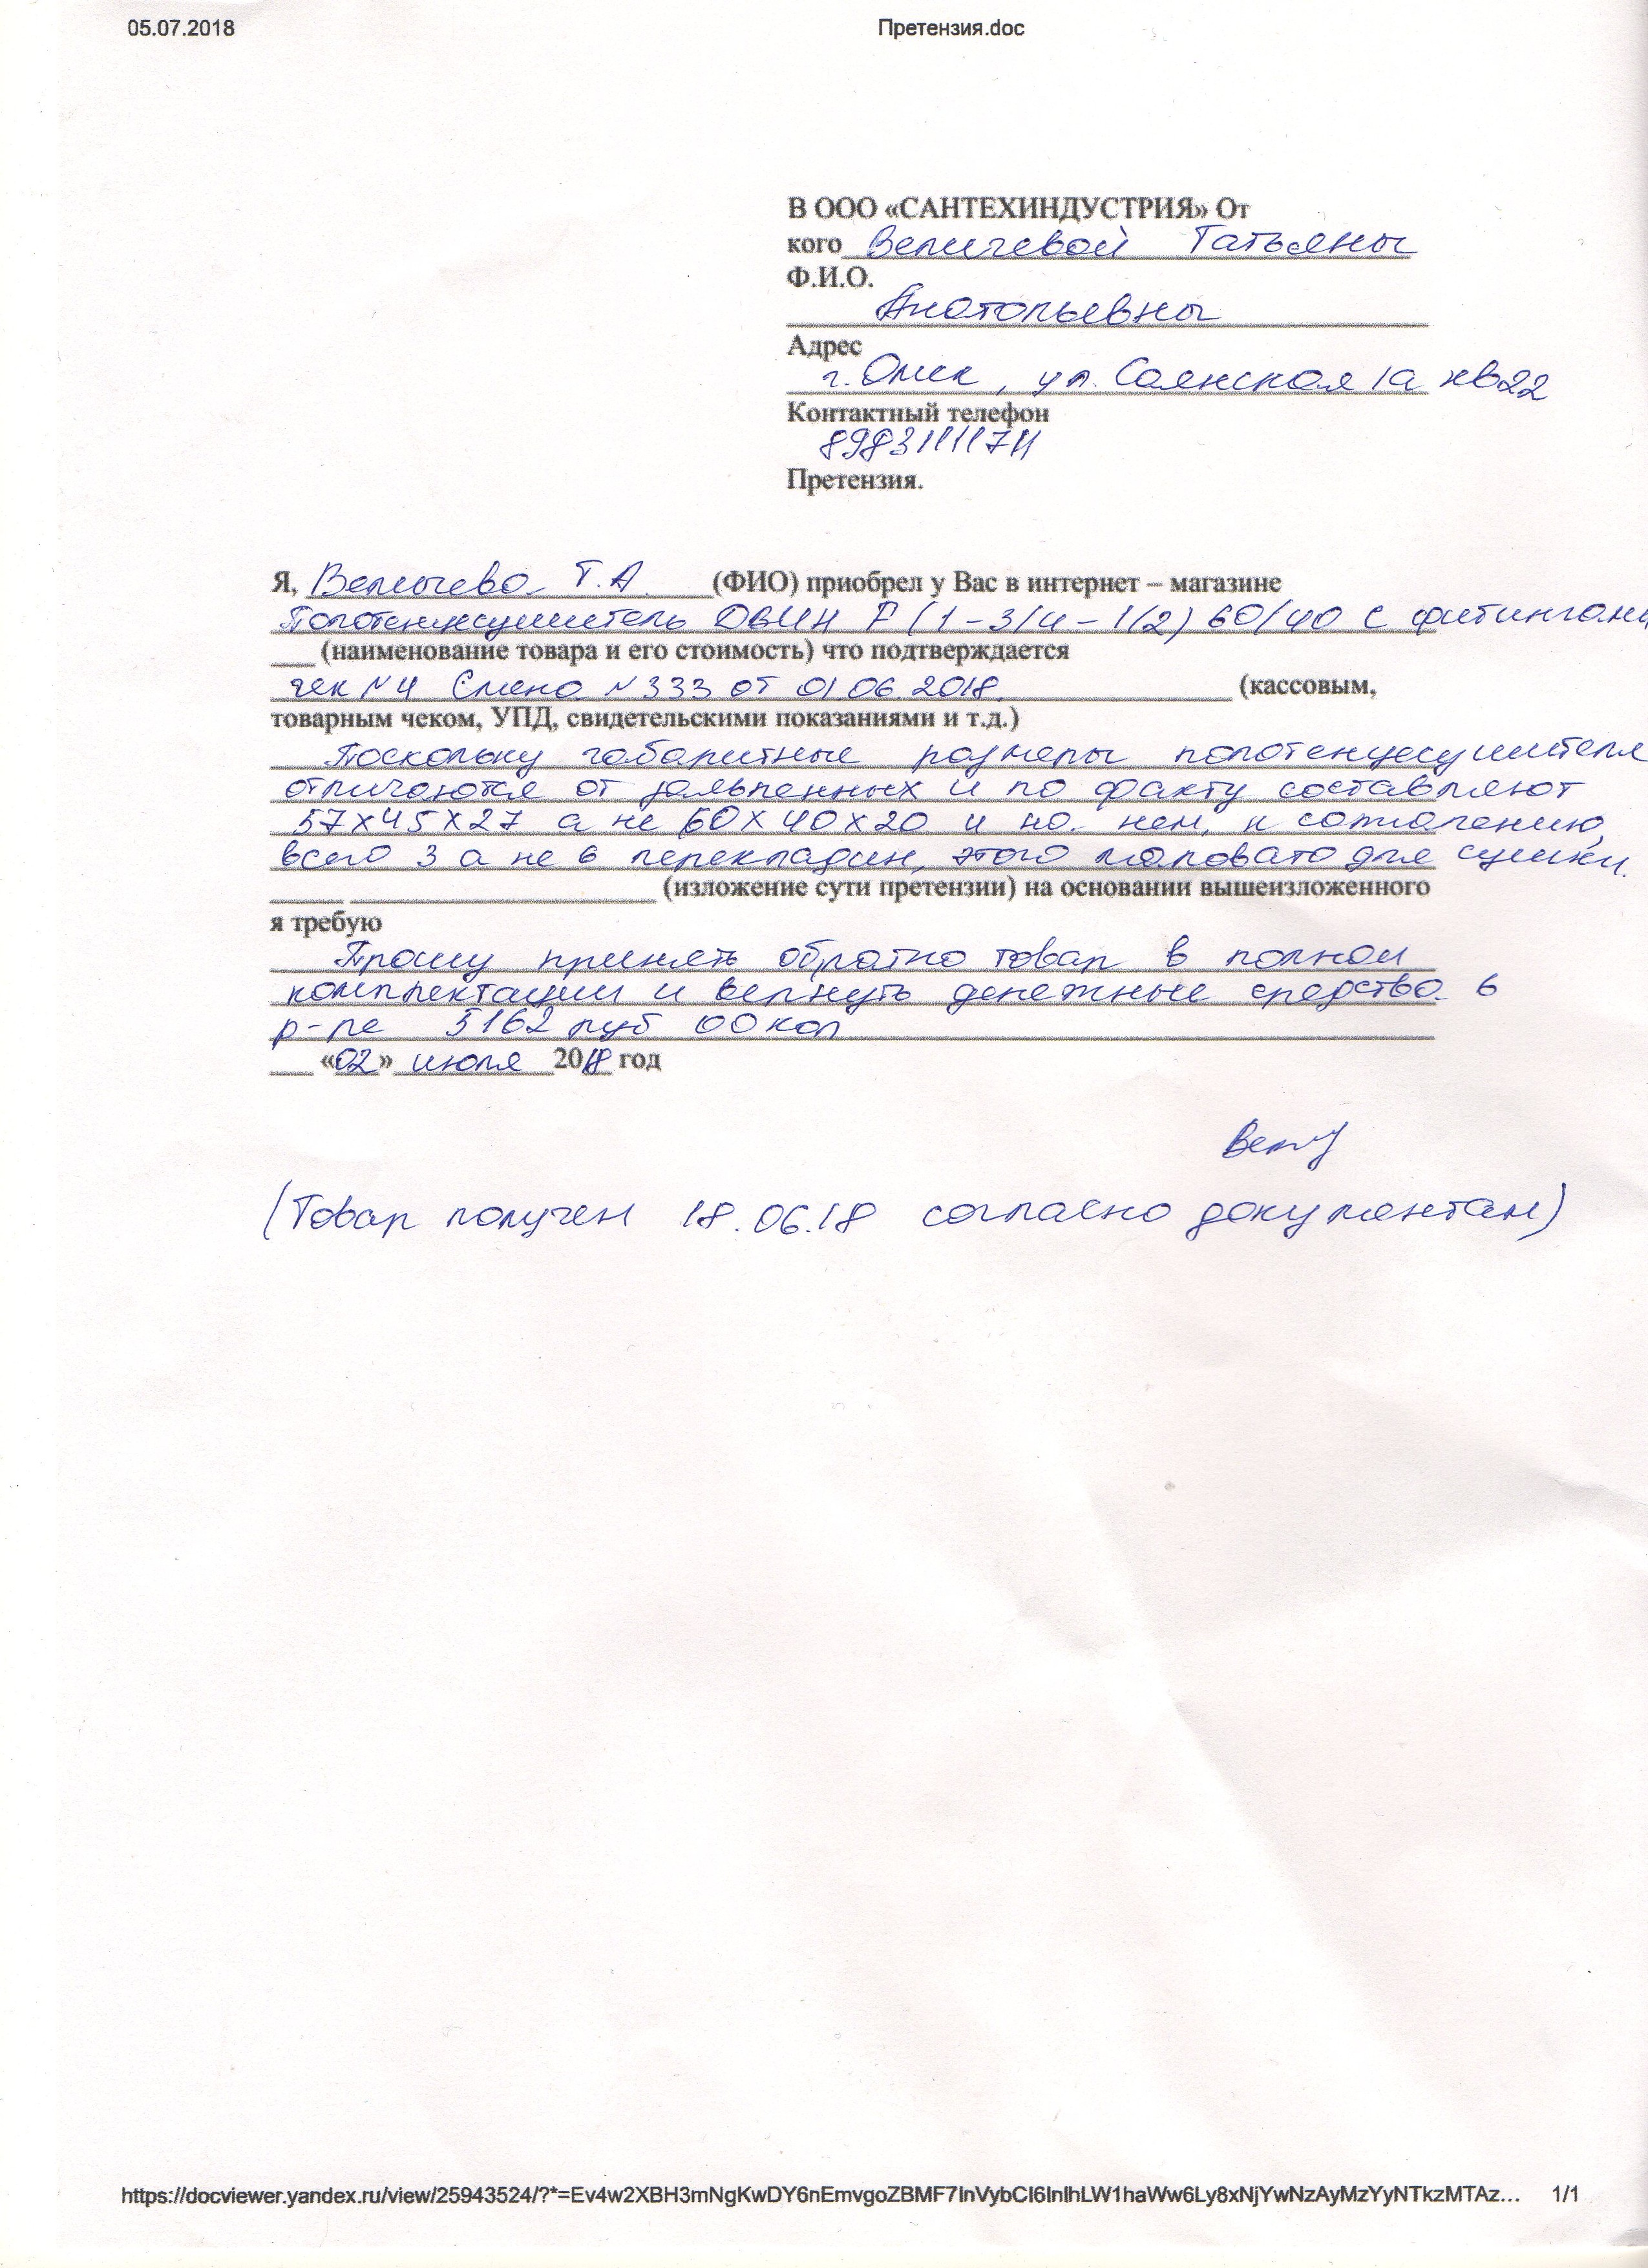 05.07.2018 Претензия.doc
В ООО «САНТЕХИНДУСТРИЯ» От
кого Величевой Татьяны
Ф.И.О.
Анатольевны
Адрес
г. Омск, ул. Саянская 1а кв22
Контактный телефон
Претензия.
Я, Величева Т.А. (ФИО) приобрел у Вас в интернет – магазине
Полотенцесушитель ДВИН F (1-3/4-1/2) 60/40 с фитингами
(наименование товара и его стоимость) что подтверждается
чек №4 Смена №333 от 01.06.2018 (кассовым,
товарным чеком, УПД, свидетельскими показаниями и т.д.)
Поскольку габаритные размеры полотенцесушителя
отличаются от заявленных и по факту составляют
57х45х27 а не 60х40х20 и на нем, к сожалению,
всего 3 а не 6 перекладин, этого маловато для сушки.
(изложение сути претензии) на основании вышеизложенного
я требую
Прошу принять обратно товар в полной
комплектации и вернуть денежные средства в
р-ре 5162 руб 00 коп
«02» июля 2018 год
(Товар получен 18.06.18 согласно документам)
https://docviewer.yandex.ru/view/25943524/?*=Ev4w2XBH3mNgKwDY6nEmvgoZBMF7InVybCI6InlhLW1haWw6Ly8xNjYwNzAyMzYyNTkzMTAz... 1/1